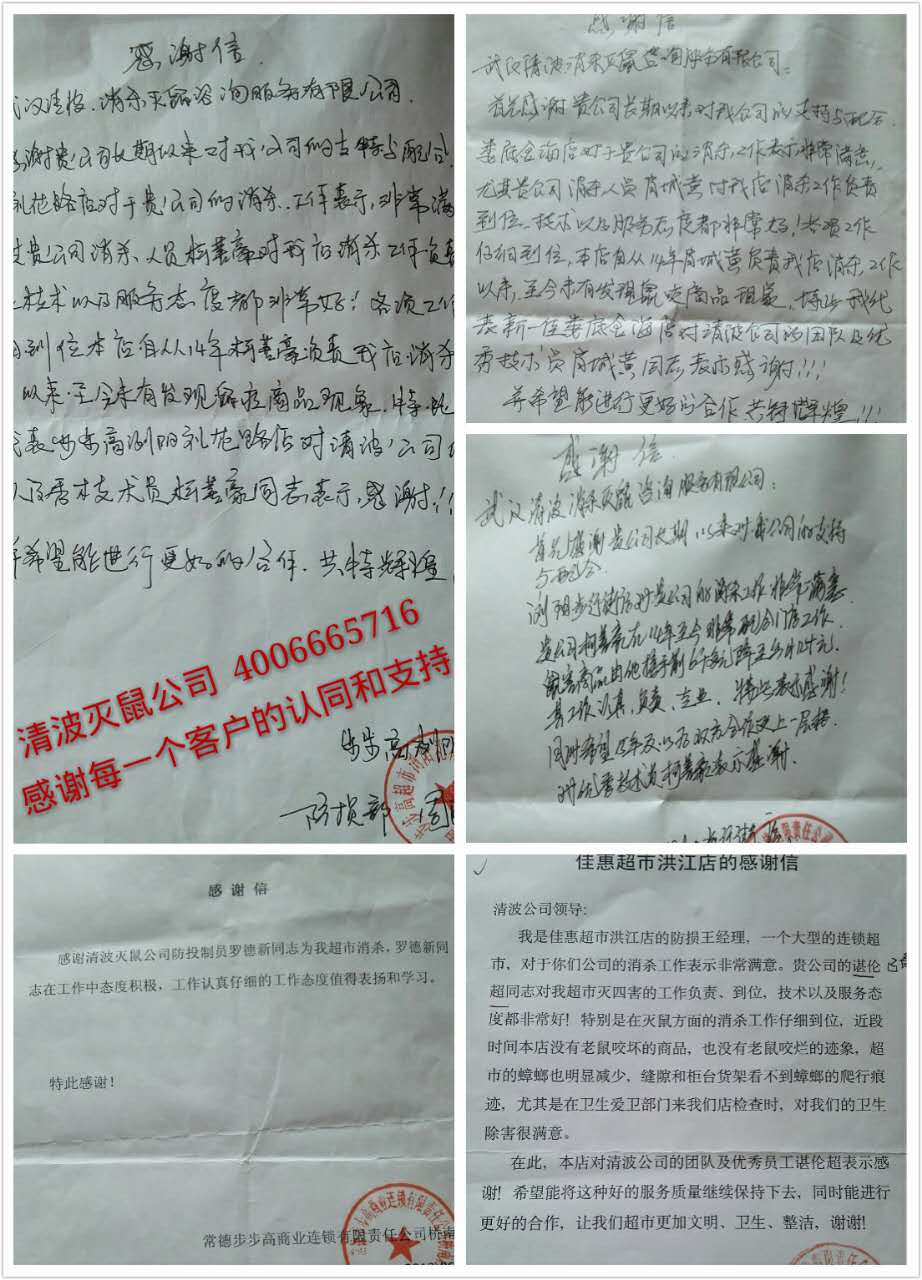 感谢信
武汉清波消杀灭鼠咨询服务有限公司
感谢贵公司长期以来对我公司的支持与配合
礼花路店对于贵公司的消杀工作表示非常满
贵公司消杀人员柯善豪对我店消杀工作负责
技术以及服务态度都非常好！各项工作
到位本店自从14年柯善豪负责我店消杀
以来.至今未有发现鼠咬商品现象.特此
代表步步高浏阳礼花路店对清波公司
优秀技术员柯善豪同志表示感谢!!!
并希望能进行更好的合作.共铸辉煌
清波灭鼠公司 4006665716
感谢每一个客户的认同和支持
步步高浏阳
防损部 周
感谢信
武汉清波消杀灭鼠咨询服务有限公司：
首先感谢贵公司长期以来对我公司的支持与配合
娄底金海店对于贵公司的消杀工作表示非常满意
尤其贵公司消杀人员 城黄对我店消杀工作负责
到位、技术以及服务态度都非常好！各项工作
仔细到位，本店自从14年 城黄负责我店消杀工作
以来，至今未有发现鼠咬商品现象，特此我代
表新一佳娄底金海店对清波公司的团队及优
秀技术员 城黄同志表示感谢!!!
并希望能进行更好的合作 共铸辉煌!!!
感谢信
武汉清波消杀灭鼠咨询服务有限公司：
首先感谢贵公司长期以来对我公司的支持
与配合
浏阳步行街店对贵公司的消杀工作非常满意
贵公司柯善豪在14年至今非常配合门店工作
鼠害商品由他接手前 降至
其工作认真、负责、专业、特此表示感谢！
同时希望 年及以后双方合作更上一层楼
对优秀技术员柯善豪表示感谢.
感谢信
感谢清波灭鼠公司防投制员罗德新同志为我超市消杀，罗德新同
志在工作中态度积极，工作认真仔细的工作态度值得表扬和学习。
特此感谢！
常德步步高商业连锁有限责任公司桥南
佳惠超市洪江店的感谢信
清波公司领导:
我是佳惠超市洪江店的防损王经理，一个大型的连锁超
市，对于你们公司的消杀工作表示非常满意。贵公司的谌伦
超同志对我超市灭四害的工作负责、到位，技术以及服务态
度都非常好！特别是在灭鼠方面的消杀工作仔细到位，近段
时间本店没有老鼠咬坏的商品，也没有老鼠咬烂的迹象，超
市的蟑螂也明显减少，缝隙和柜台货架看不到蟑螂的爬行痕
迹，尤其是在卫生爱卫部门来我们店检查时，对我们的卫生
除害很满意。
在此，本店对清波公司的团队及优秀员工谌伦超表示感
谢！希望能将这种好的服务质量继续保持下去，同时能进行
更好的合作，让我们超市更加文明、卫生、整洁，谢谢！